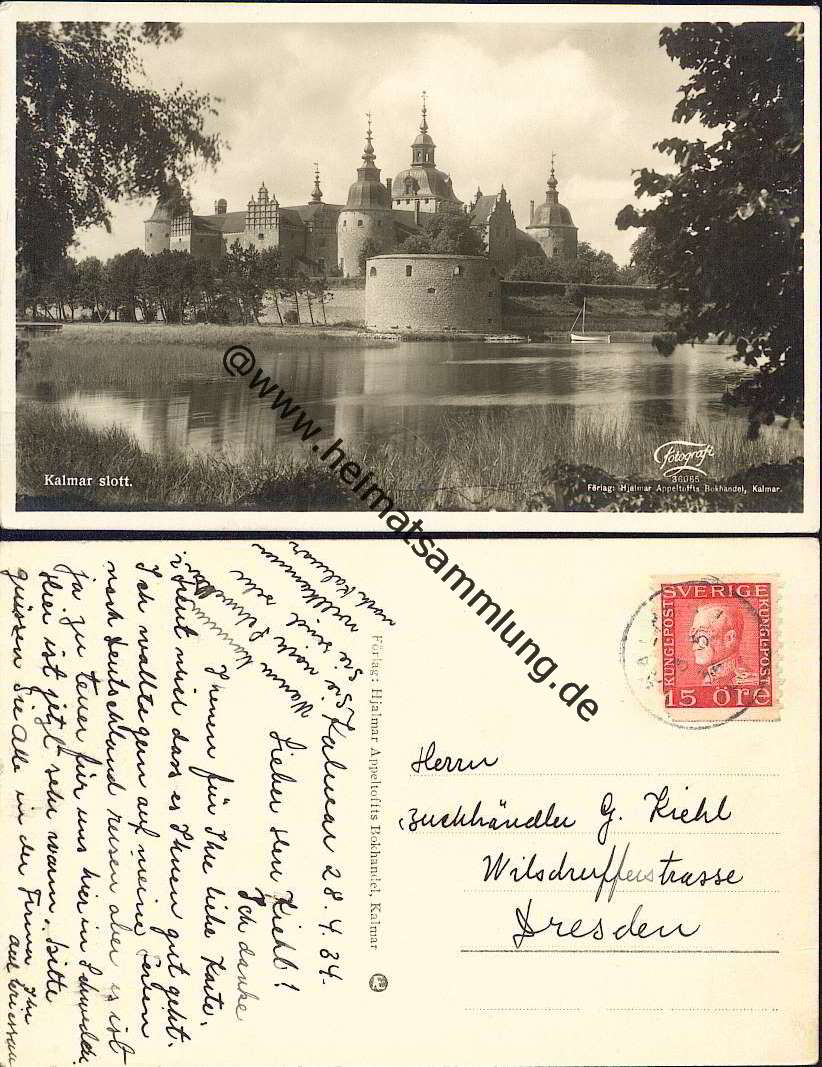 Kalmar slott.
Fotografi
36065
Förlag: Hjalmar Appeltoffts Bokhandel, Kalmar.
@www.heimatsammlung.de
SVERIGE
KUNGL·POST
KUNGL·POST
15 ÖRE
Förlag: Hjalmar Appeltoffts Bokhandel, Kalmar
Herrn
Buchhändler G. Kiehl
Wilsdrufferstrasse
Dresden
Kalmar 28.4.34.
Lieber Herr Kiehl!
Ich danke
Ihnen für Ihre liebe Karte.
Freut mich dass es Ihnen gut geht.
Ich wollte gern auf meine Ferien
nach Deutschland reisen aber es ist
ja zu teuer für uns hier in Schweden.
Hier ist jetzt sehr warm. Bitte
grüssen Sie Alle in der Firma. Ihr
Wann kommen
Sie nach Schweden
Sie sind sehr
willkommen
nach Kalmar